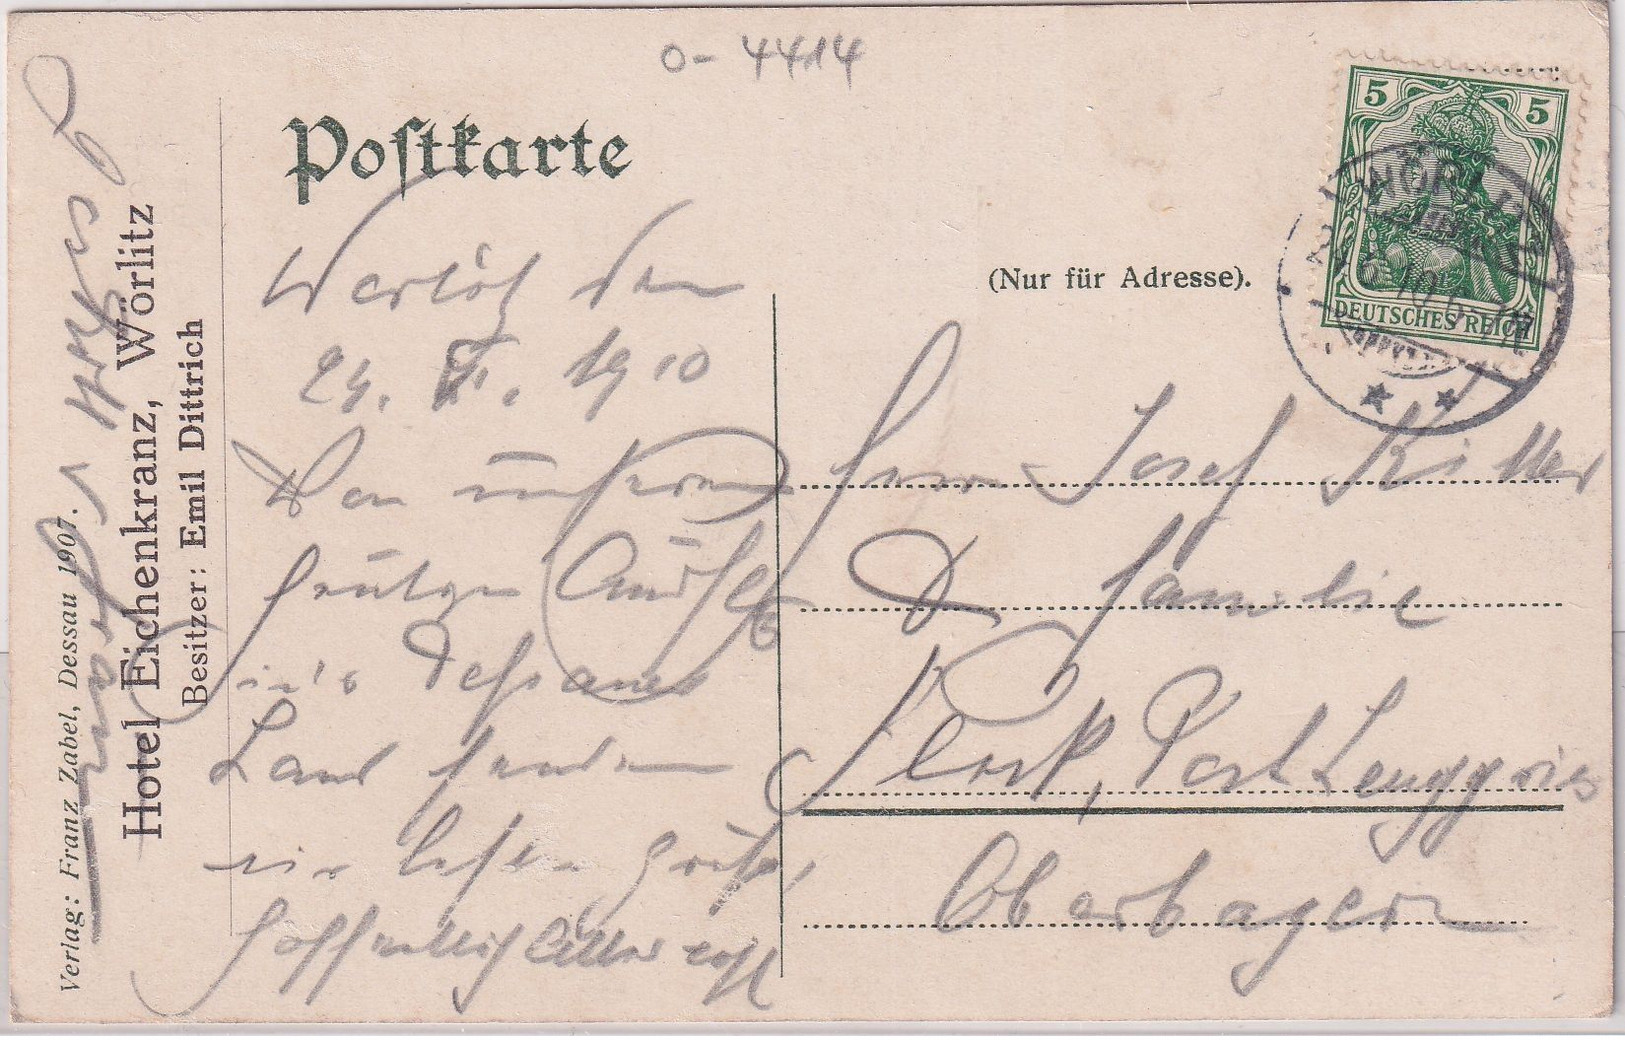 0-4414
Postkarte
(Nur für Adresse).
5 5
DEUTSCHES REICH
WÖRLITZ
Verlag: Franz Zabel, Dessau 1907.
Hotel Eichenkranz, Wörlitz
Besitzer: Emil Dittrich
Wörlitz den
1910
Von unserem
heutigen Ausflug
in's Dessauer
Land senden
wir besten Grüße,
hoffentlich alles wohl
Herrn Josef
& Familie
Post Lenggries
Oberbayern